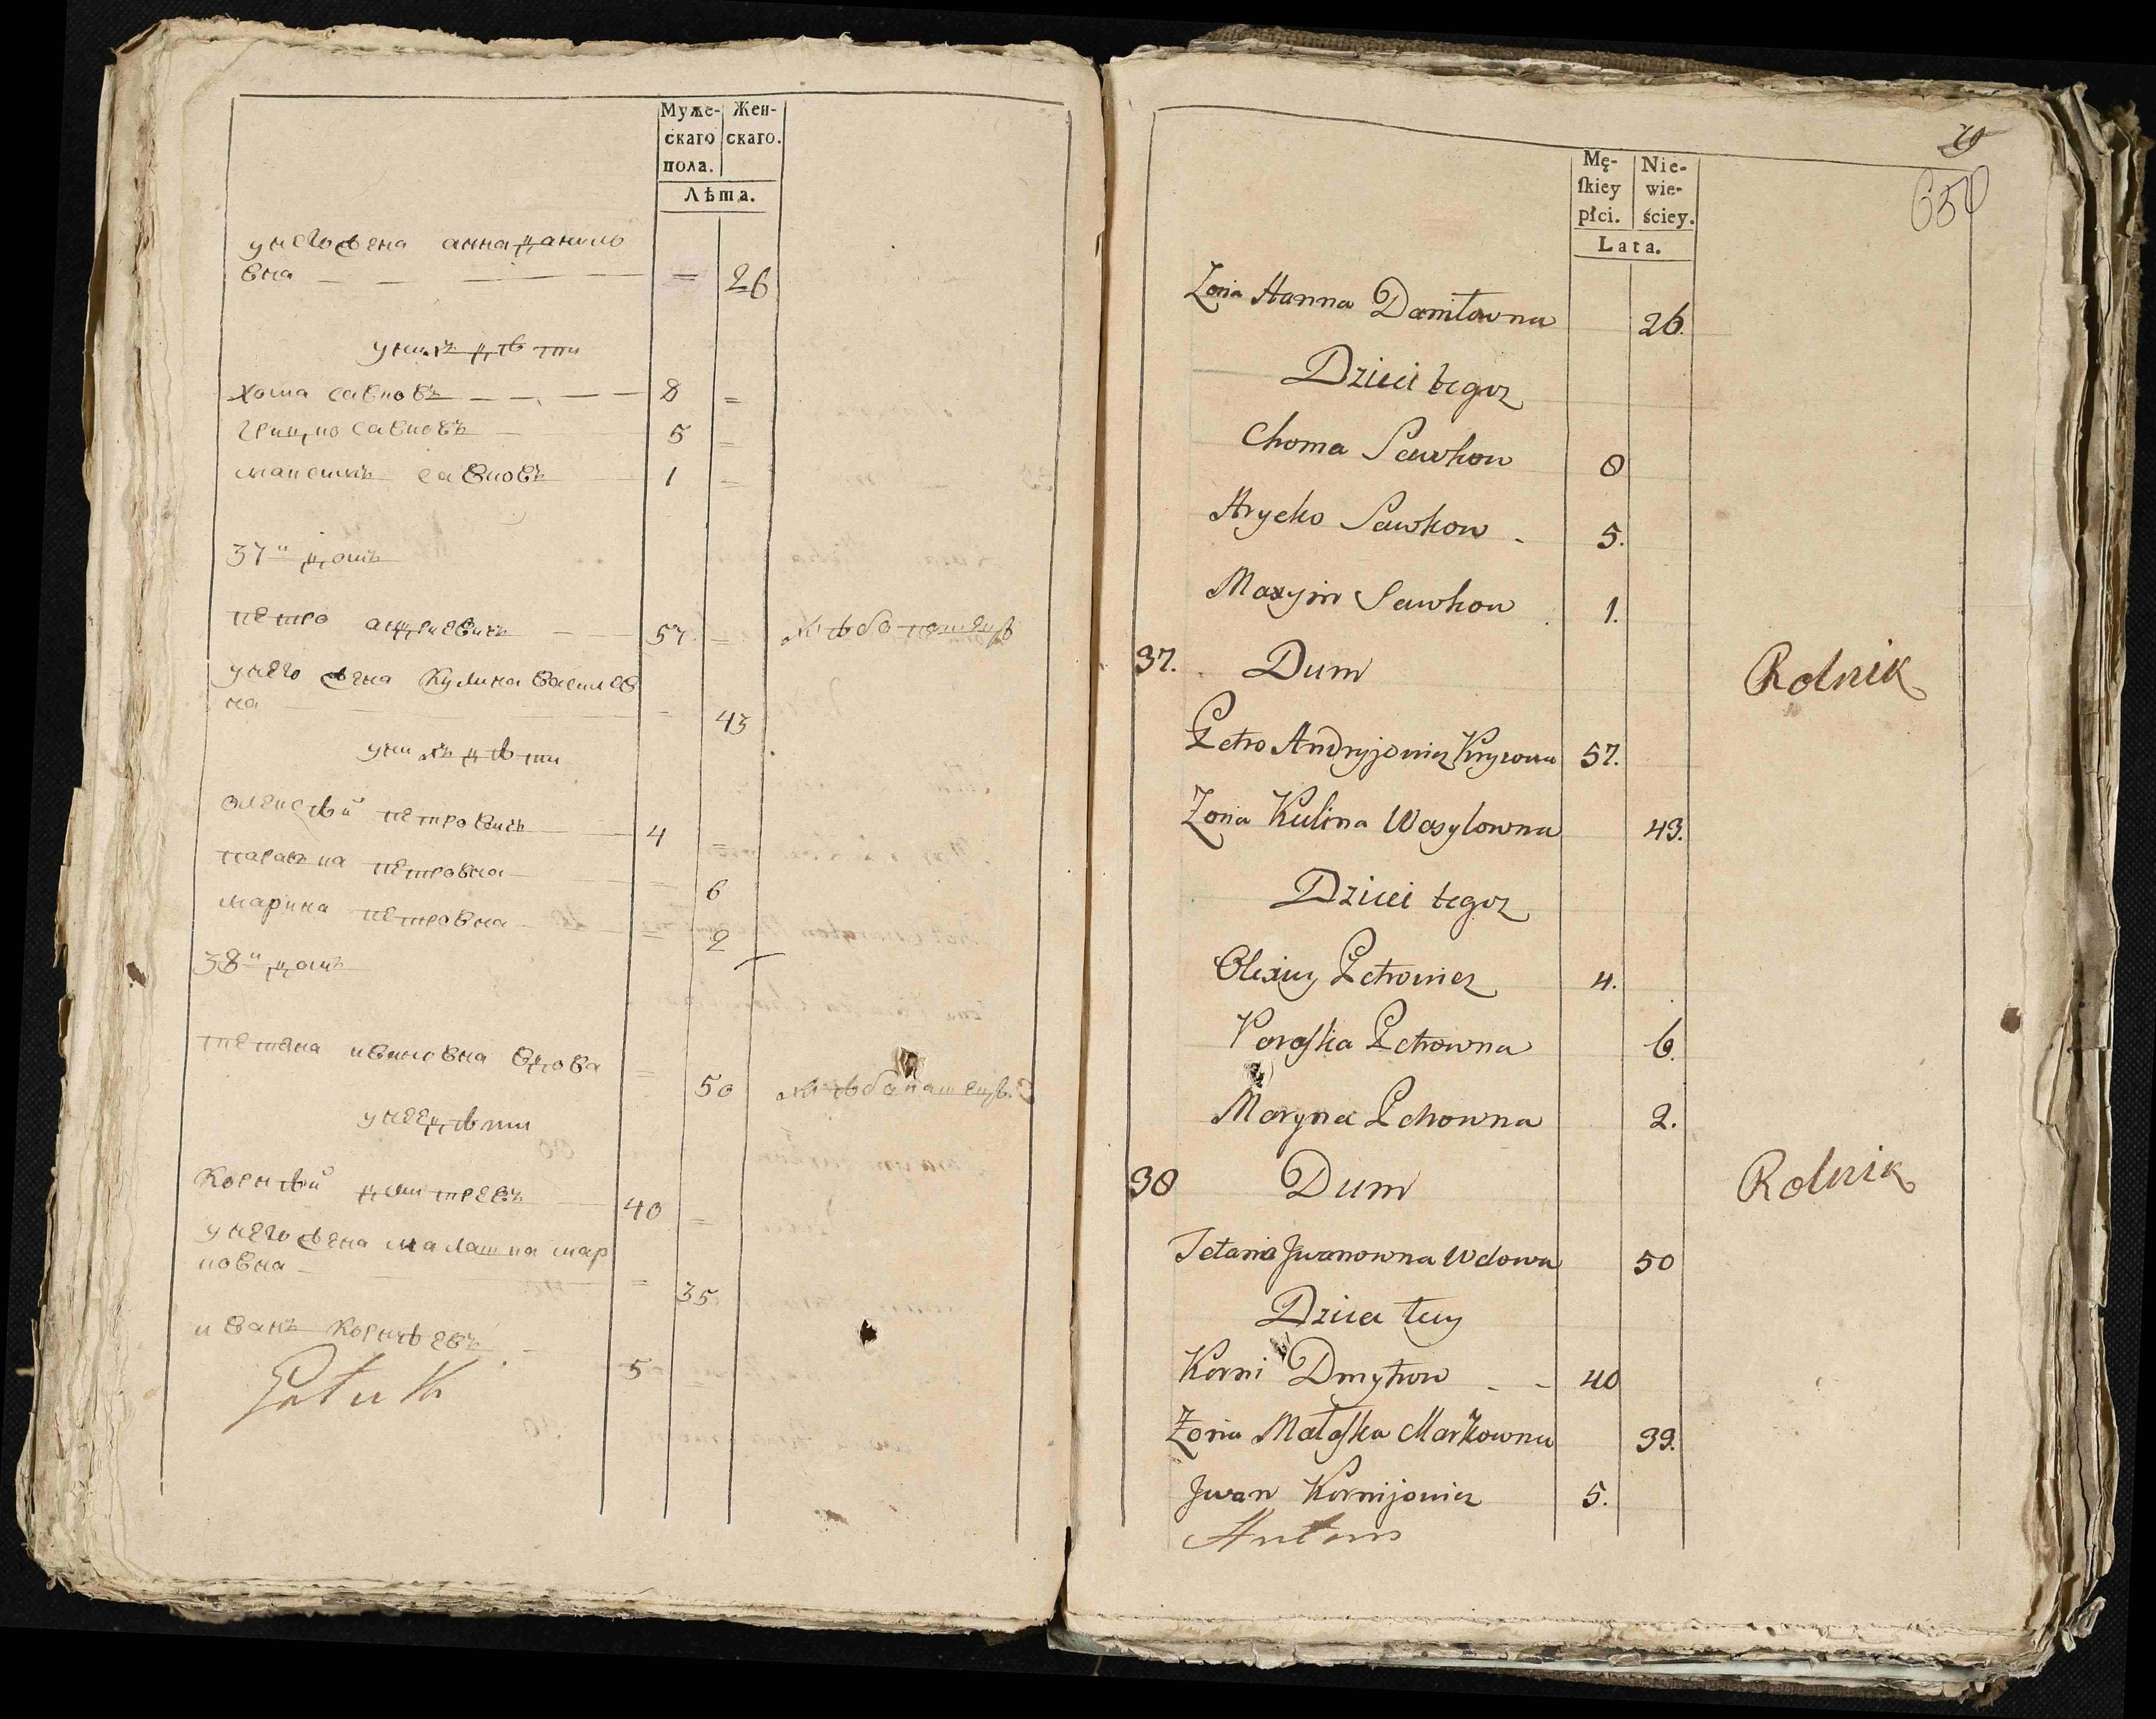 Муже- Жен-
скаго скаго.
пола.
Лѣта.
унегожена анна данило
вна — — — = 26
унихъ дѣти
хома савковъ — — — 8 =
грицко савковъ — 5 =
максимъ савковъ — 1 =
37й домъ
петро андриевичъ — 57 = хлѣбопашецъ
унего жена Кулина василев
на — = 43
унихъ дѣти
олексѣй петровичъ — 4 =
параска петровна — = 6
марина петровна — = 2
38й домъ
тетяна ивановна вдова = 50 хлѣбапашецъ
унее дѣти
Корнѣй дмитревъ — 40 =
унего жена малашка мар
ковна — = 35
иванъ Корнѣевъ — 5
Mę- Nie-
ſkiey wie-
płci. ściey.
Lata.
650
Zona Hanna Daniłowna 26.
Dzieci tegoz
Choma Sawkow 8
Hrycko Sawkow - 5.
Maxym Sawkow 1.
37. Dum Rolnik
Petro Andryjowicz 57.
Zona Kulina Wasylowna 43.
Dzieci tegoz
Olexiy Petrowicz 4.
Paraſka Petrowna 6.
Maryna Petrowna 2.
38 Dum Rolnik
Tetania Jwanowna Wdowa 50
Dzieci tey
Korni Dmytrow - - 40
Zona Małaſka Markowna 39.
Jwan Kornijowicz 5.